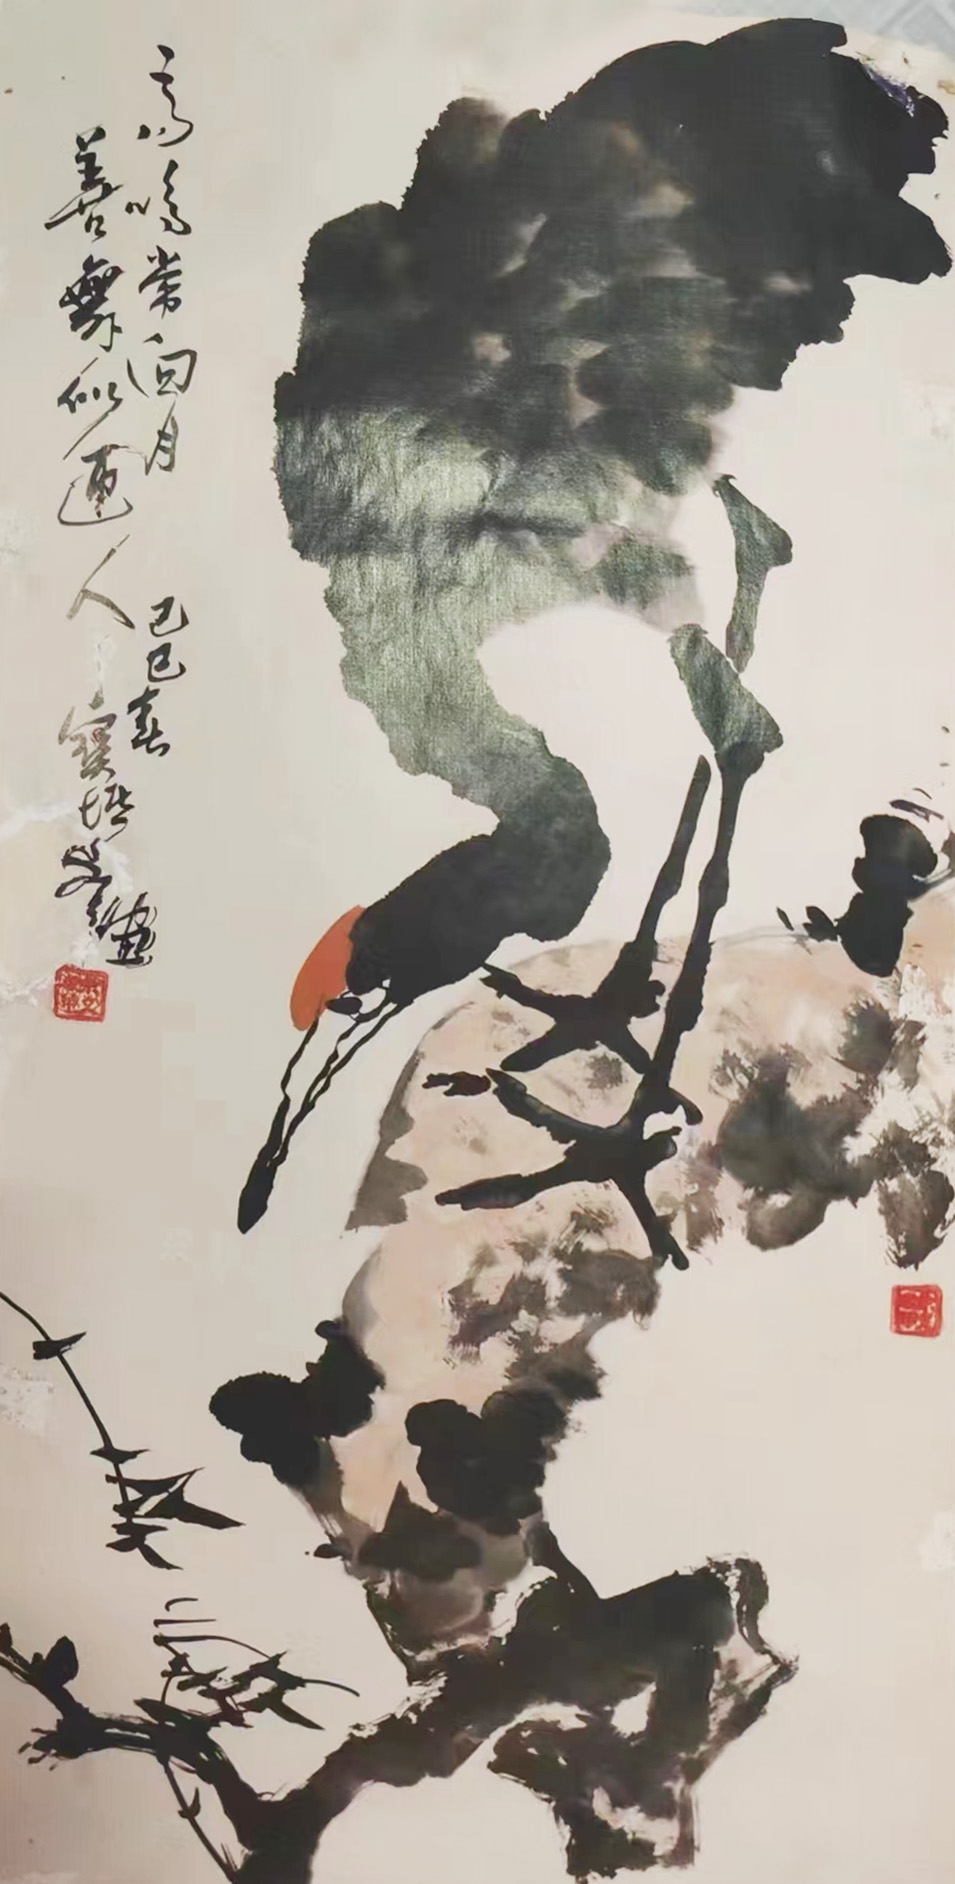 高鸣常向月
善舞似迎人
己巳春
宝培